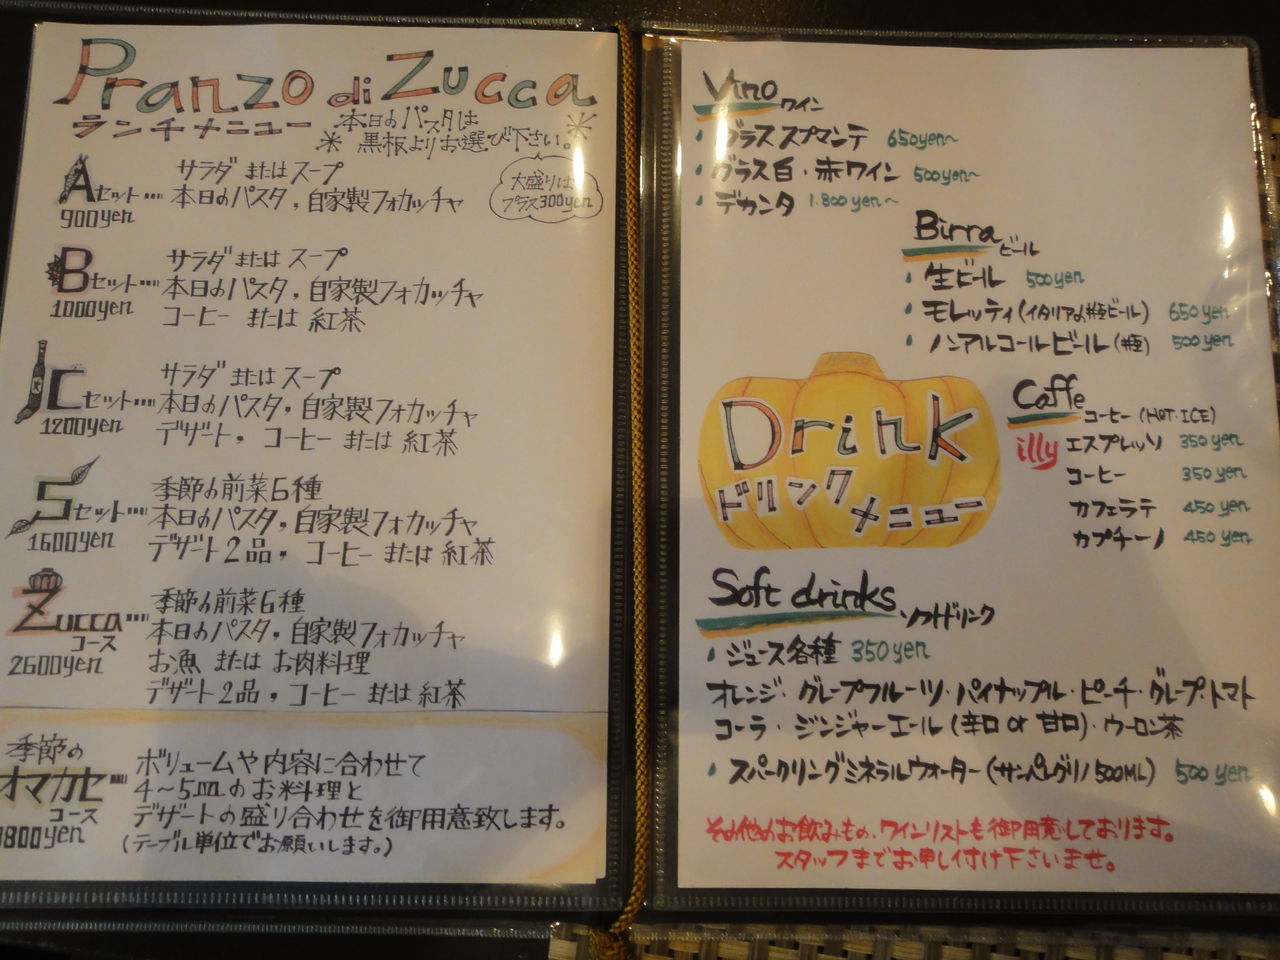 Pranzo di Zucca
ランチメニュー
※本日のパスタは
黒板よりお選び下さい。※
大盛りは
プラス300yen
Aセット サラダまたはスープ
900yen 本日のパスタ,自家製フォカッチャ
Bセット サラダまたはスープ
本日のパスタ,自家製フォカッチャ
1000yen コーヒーまたは紅茶
Cセット サラダまたはスープ
本日のパスタ,自家製フォカッチャ
1200yen デザート,コーヒーまたは紅茶
Sセット 季節の前菜6種
本日のパスタ,自家製フォカッチャ
1600yen デザート2品,コーヒーまたは紅茶
Zucca コース 季節の前菜6種
本日のパスタ,自家製フォカッチャ
2600yen お魚またはお肉料理
デザート2品,コーヒーまたは紅茶
季節の
オマカセ
コース
800yen
ボリュームや内容に合わせて
4~5皿のお料理と
デザートの盛り合わせを御用意致します。
(テーブル単位でお願いします。)
Vino ワイン
・グラススプマンテ 650yen~
・グラス白・赤ワイン 500yen~
・デカンタ 1.800yen~
Birra ビール
・生ビール 500yen
・モレッティ(イタリアの瓶ビール) 650yen
・ノンアルコールビール(瓶) 500yen
Drink
ドリンク
メニュー
Caffe コーヒー(HOT・ICE)
illy エスプレッソ 350yen
コーヒー 350yen
カフェラテ 450yen
カプチーノ 450yen
Soft drinks ソフトドリンク
・ジュース各種 350yen
オレンジ・グレープフルーツ・パイナップル・ピーチ・グレープ・トマト
コーラ・ジンジャーエール(辛口or甘口)・ウーロン茶
・スパークリングミネラルウォーター(サンペレグリノ500ML) 500yen
その他のお飲みもの、ワインリストも御用意しております。
スタッフまでお申し付け下さいませ。